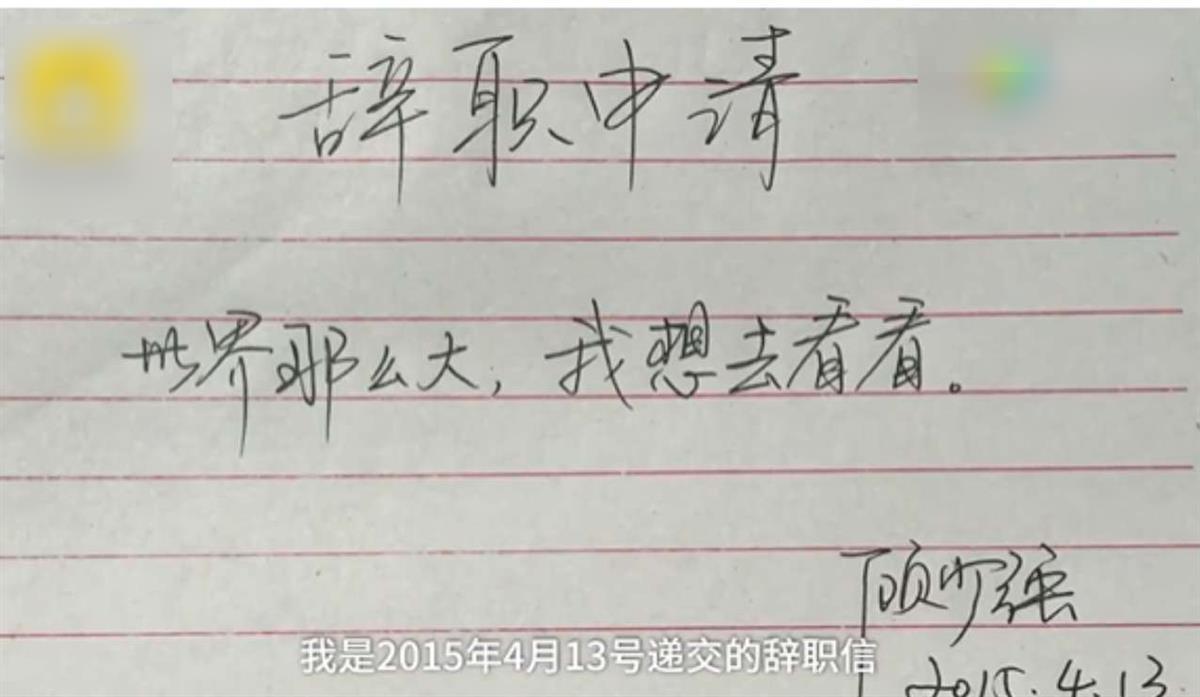 辞职申请
世界那么大，我想去看看。
顾少强
我是2015年4月13号递交的辞职信
2015.4.13